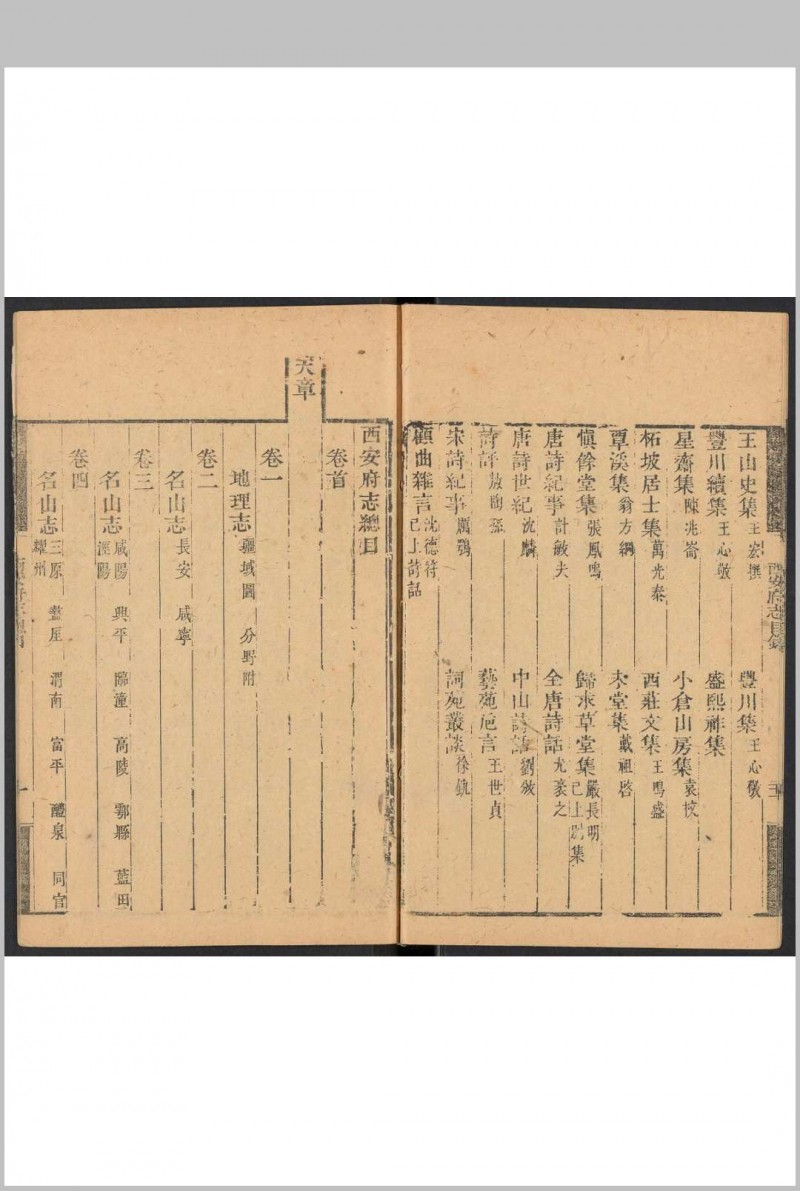 王山史集王宏撰 豐川集王心敬
豐川續集王心敬 盛熙祚集
星齋集陳兆崙 小倉山房集袁枚
柘坡居士集萬光泰 西莊文集王鳴盛
覃溪集翁方綱 集戴祖啓
慎餘堂集張鳳鳴 歸求草堂集嚴長明已上別集
唐詩紀事計敏夫 全唐詩話尤袤之
唐詩世紀沈麟 中山詩話劉攽
詩評敖陶孫 藝苑卮言王世貞
宋詩紀事厲鶚 詞苑叢談徐釚
顧曲雜言沈德符已上詩話
西安府志目錄
西安府志總目
卷首
天章
卷一
地理志疆域圖 分野附
卷二
名山志長安 咸寧
卷三
名山志咸陽 興平 臨潼 高陵 鄠縣 藍田 涇陽
卷四
名山志三原 盩厔 渭南 富平 醴泉 同官 耀州